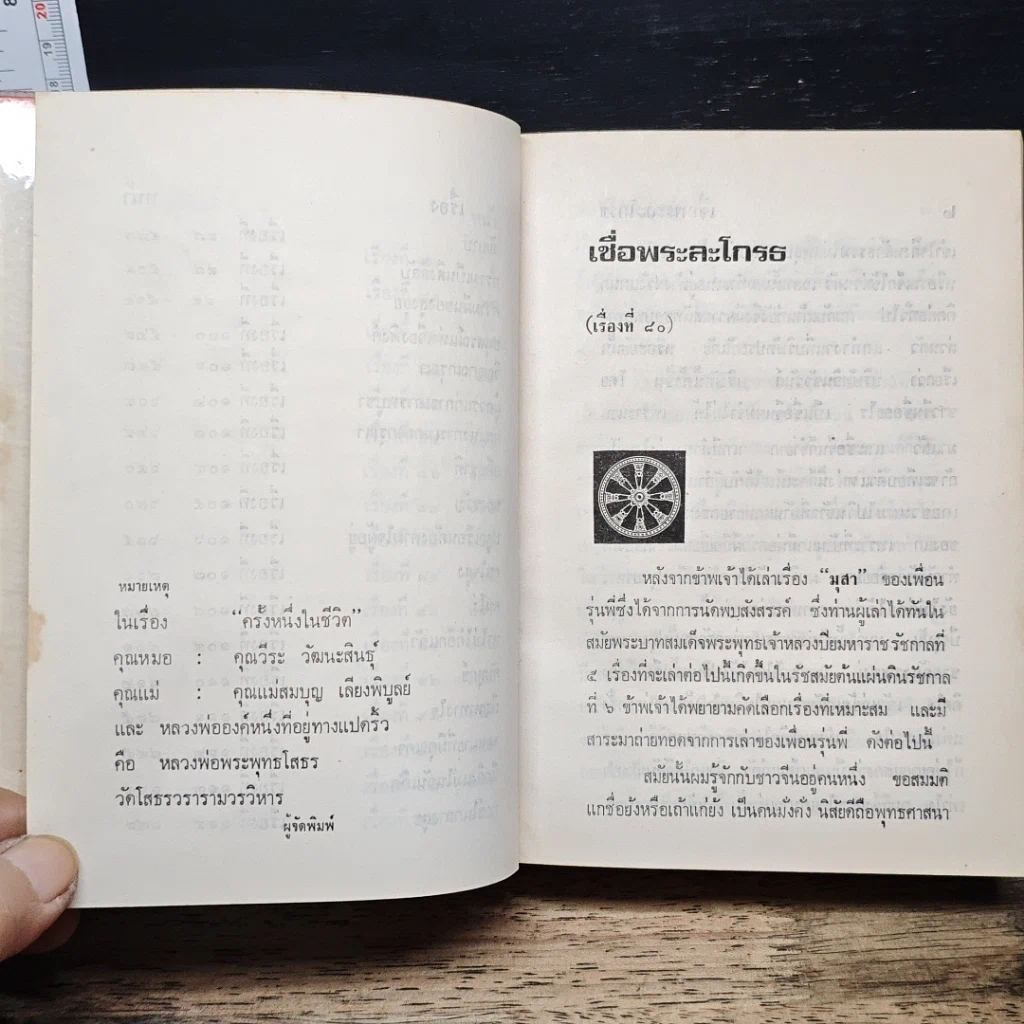 หมายเหตุ
ในเรื่อง "ครั้งหนึ่งในชีวิต"
คุณหมอ : คุณวีระ วัฒนะสินธุ์
คุณแม่ : คุณแม่สมบุญ เลียงพิบูลย์
และ หลวงพ่อองค์หนึ่งที่อยู่ทางแปดริ้ว
คือ หลวงพ่อพระพุทธโสธร
วัดโสธรวรารามวรวิหาร
ผู้จัดพิมพ์
เชื่อพระละโกรธ
(เรื่องที่ ๘๐)
หลังจากข้าพเจ้าได้เล่าเรื่อง "มุสา" ของเพื่อน
รุ่นพี่ซึ่งได้จากการนัดพบสังสรรค์ ซึ่งท่านผู้เล่าได้ทันใน
สมัยพระบาทสมเด็จพระพุทธเจ้าหลวงปิยมหาราชรัชกาลที่
๕ เรื่องที่จะเล่าต่อไปนี้เกิดขึ้นในรัชสมัยต้นแผ่นดินรัชกาล
ที่ ๖ ข้าพเจ้าได้พยายามคัดเลือกเรื่องที่เหมาะสม และมี
สาระมาถ่ายทอดจากการเล่าของเพื่อนรุ่นพี่ ดังต่อไปนี้
สมัยนั้นผมรู้จักกับชาวจีนอยู่คนหนึ่ง ขอสมมติ
แกชื่อยังหรือเถ้าแก่ยัง เป็นคนมั่งคั่ง นิสัยดีถือพุทธศาสนา